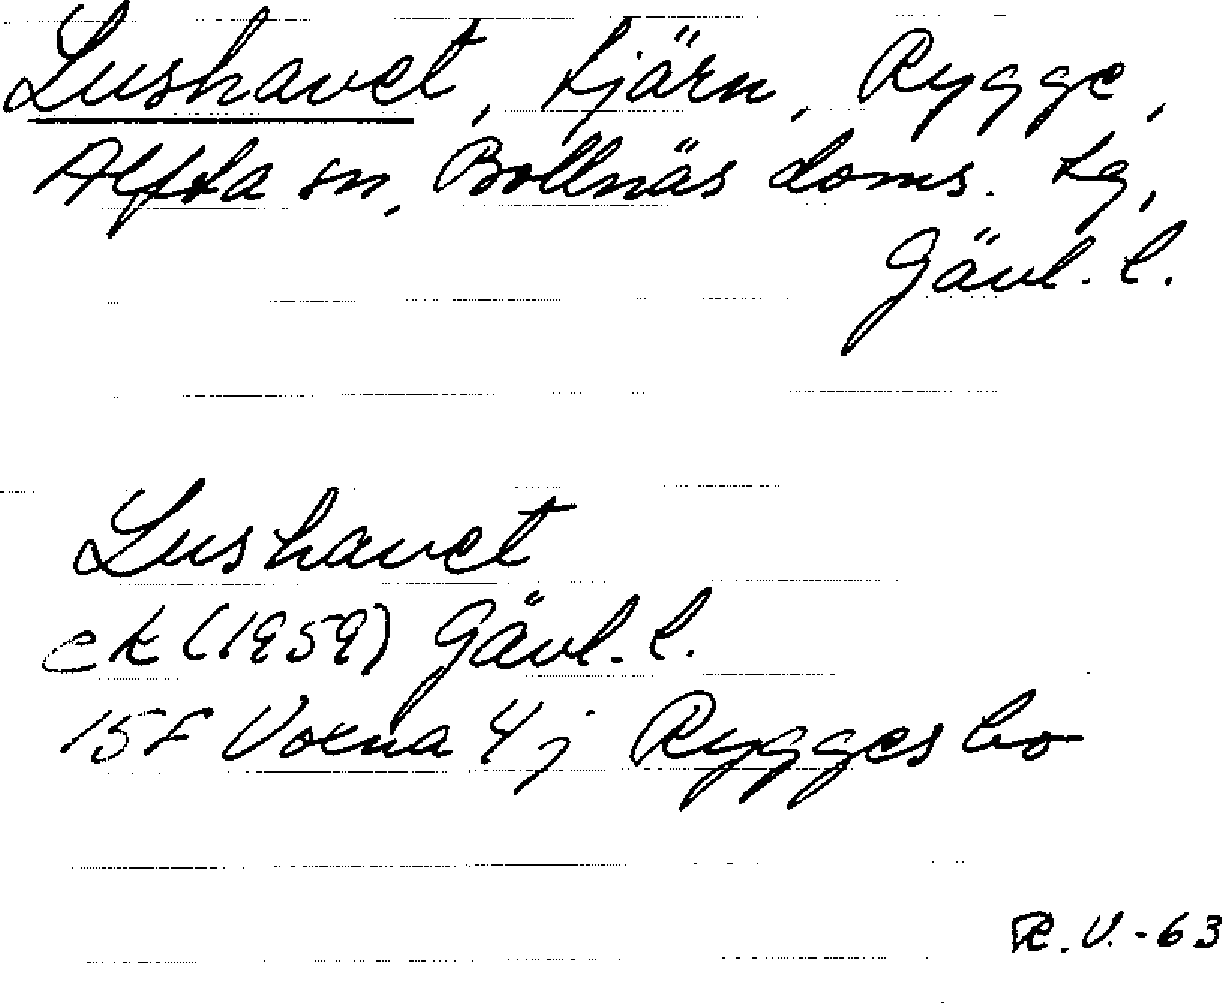 Lushavet, tjärn, Rygge,
Alfta sn, Bollnäs doms. tg,
Gävl. l.
Lushavet
ek (1959) Gävl. l.
15F Voxna 4j Ryggesbo
R.V.-63